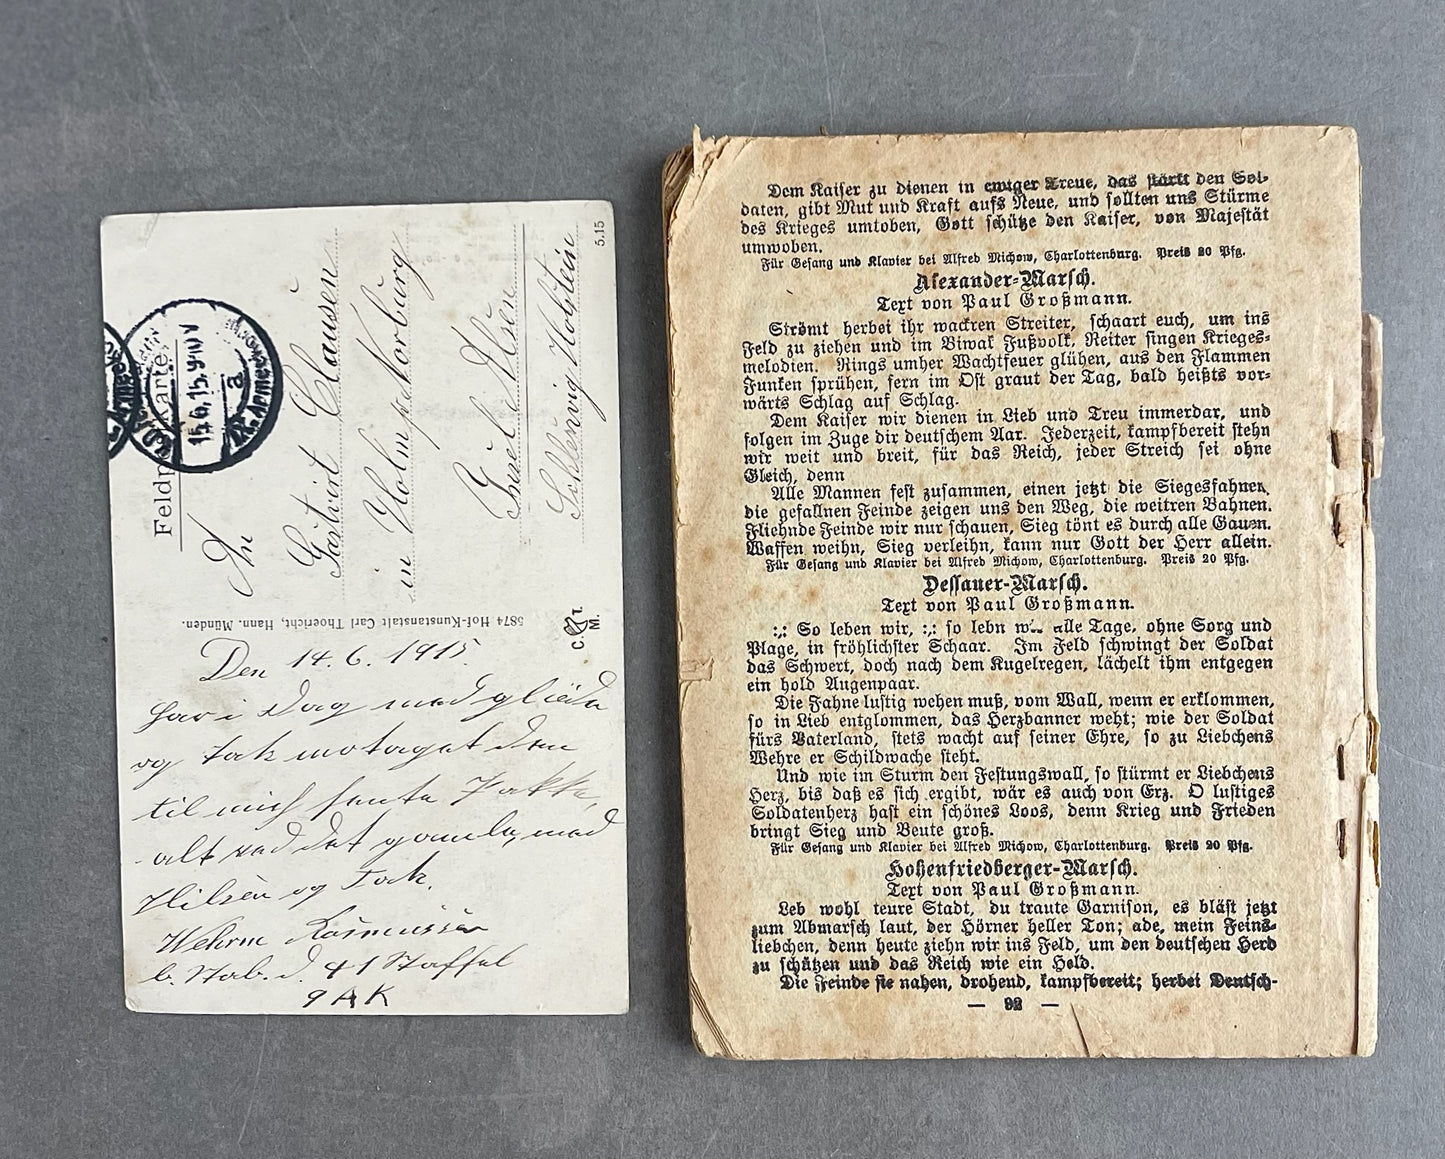 Feldpostkarte
15.6.15. 9-10 V
a
An
Gastwirt Clausen
in Holm pr Norburg
Insel Alsen
Schleswig Holstein
5.15
5874 Hof-Kunstanstalt Carl Thoericht, Hann. Münden.
M.
Den 14.6.1915.
har i Dag med glæde
og tak motaget den
til mich sente Pakke,
alt ved det gamle, med
Hilsen og Tak.
Rasmussen
b. Stab. d. 41 Staffel
9 A K
Dem Kaiser zu dienen in ewiger Treue, das stärkt den Sol-
daten, gibt Mut und Kraft aufs Neue, und sollten uns Stürme
des Krieges umtoben, Gott schütze den Kaiser, von Majestät
umwoben.
Für Gesang und Klavier bei Alfred Michow, Charlottenburg. Preis 20 Pfg.
Alexander-Marsch.
Text von Paul Großmann.
Strömt herbei ihr wackren Streiter, schaart euch, um ins
Feld zu ziehen und im Biwak Fußvolk, Reiter singen Krieges-
melodien. Rings umher Wachtfeuer glühen, aus den Flammen
Funken sprühen, fern im Ost graut der Tag, bald heißts vor-
wärts Schlag auf Schlag.
Dem Kaiser wir dienen in Lieb und Treu immerdar, und
folgen im Zuge dir deutschem Aar. Jederzeit, kampfbereit stehn
wir weit und breit, für das Reich, jeder Streich sei ohne
Gleich, denn
Alle Mannen fest zusammen, einen jetzt die Siegesfahnen,
die gefallnen Feinde zeigen uns den Weg, die weitren Bahnen.
Fliehnde Feinde wir nur schauen, Sieg tönt es durch alle Gauen.
Waffen weihn, Sieg verleihn, kann nur Gott der Herr allein.
Für Gesang und Klavier bei Alfred Michow, Charlottenburg. Preis 20 Pfg.
Dessauer-Marsch.
Text von Paul Großmann.
:,: So leben wir, :,: so lebn alle Tage, ohne Sorg und
Plage, in fröhlichster Schaar. Im Feld schwingt der Soldat
das Schwert, doch nach dem Kugelregen, lächelt ihm entgegen
ein hold Augenpaar.
Die Fahne lustig wehen muß, vom Wall, wenn er erklommen,
so in Lieb entglommen, das Herzbanner weht; wie der Soldat
fürs Vaterland, stets wacht auf seiner Ehre, so zu Liebchens
Wehre er Schildwache steht.
Und wie im Sturm den Festungswall, so stürmt er Liebchens
Herz, bis daß es sich ergibt, wär es auch von Erz. O lustiges
Soldatenherz hast ein schönes Loos, denn Krieg und Frieden
bringt Sieg und Beute groß.
Für Gesang und Klavier bei Alfred Michow, Charlottenburg. Preis 20 Pfg.
Hohenfriedberger-Marsch.
Text von Paul Großmann.
Leb wohl teure Stadt, du traute Garnison, es bläst jetzt
zum Abmarsch laut, der Hörner heller Ton; ade, mein Feins-
liebchen, denn heute ziehn wir ins Feld, um den deutschen Herd
zu schützen und das Reich wie ein Held.
Die Feinde sie nahen, drohend, kampfbereit; herbei Deutsch-
— 92 —